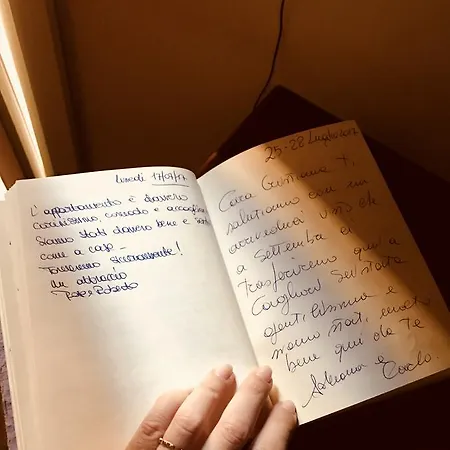 Lunedì 17/07/17
L'appartamento è davvero
carinissimo, comodo e accogliente
Siamo stati davvero bene e
come a casa -
Torneremo sicuramente!
Un abbraccio
Roberto
25-28 Luglio 2017
Cara Cristiana ti
salutiamo con un
arrivederci visto che
a settembre ci
trasferiremo qui a
Cagliari. Sei stata
gentilissima e
siamo stati molto
bene qui da te
Adriana e
Carlo.